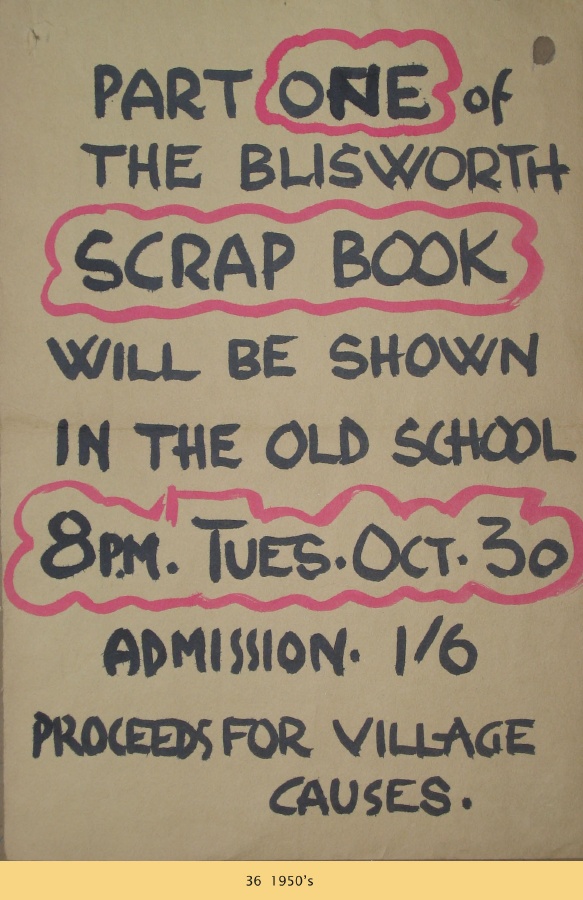 PART ONE of
THE BLISWORTH
SCRAP BOOK
WILL BE SHOWN
IN THE OLD SCHOOL
8P.M. TUES. OCT. 30
ADMISSION. 1/6
PROCEEDS FOR VILLAGE
CAUSES.
36 1950's